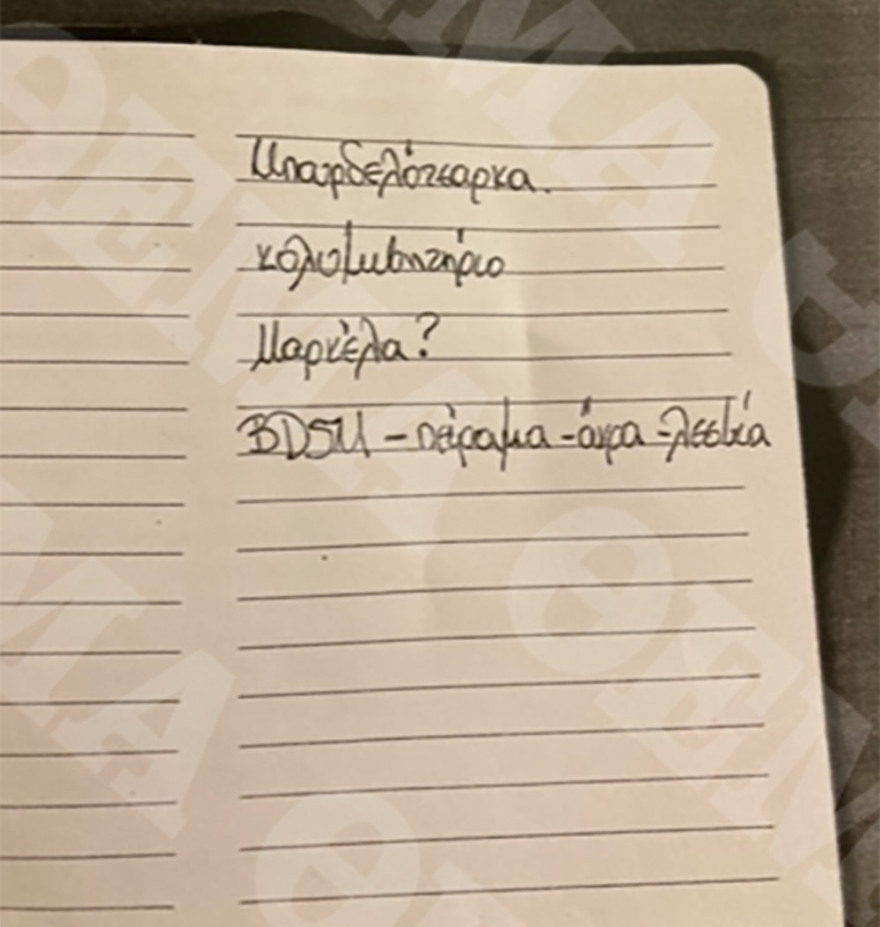 Μπουρδελότσαρκα.
κολυμβητήριο
Μαρκέλα?
BDSM - πείραμα - άκρα - λεσβία
ΘΕΜΑ